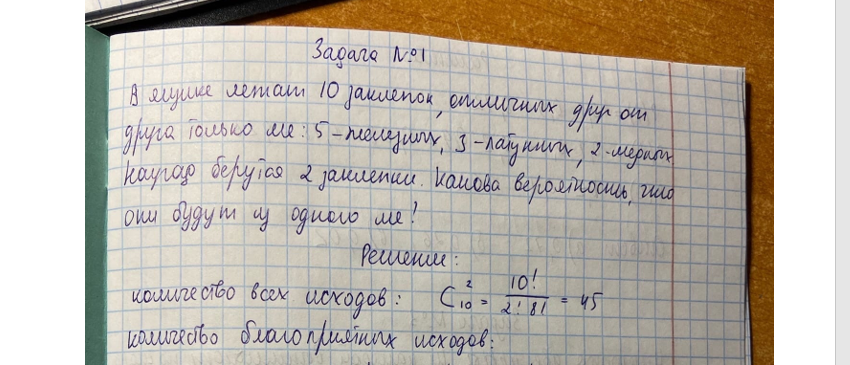 Задача №1
В ящике лежат 10 заклепок, отличных друг от
друга только ме: 5-железных, 3-латунных, 2-медных
Наугад берутся 2 заклепки. Какова вероятность, что
они будут из одного ме!
Решение:
количество всех исходов: C₁₀² = 10!/2!8! = 45
количество благоприятных исходов: